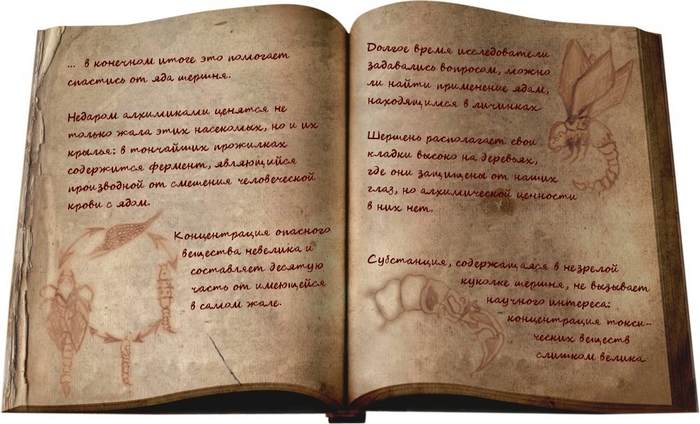 ... в конечном итоге это помогает
спастись от яда шершня.
Недаром алхимиками ценятся не
только жала этих насекомых, но и их
крылья: в тончайших прожилках
содержится фермент, являющийся
производной от смешения человеческой
крови с ядом.
Концентрация опасного
вещества невелика и
составляет десятую
часть от имеющейся
в самом жале.
Долгое время исследователи
задавались вопросом, можно
ли найти применение ядам,
находящимся в личинках
Шершень располагает свои
кладки высоко на деревьях,
где они защищены от наших
глаз, но алхимической ценности
в них нет.
Субстанция, содержащаяся в незрелой
куколке шершня, не вызывает
научного интереса:
концентрация токси-
ческих веществ
слишком велика